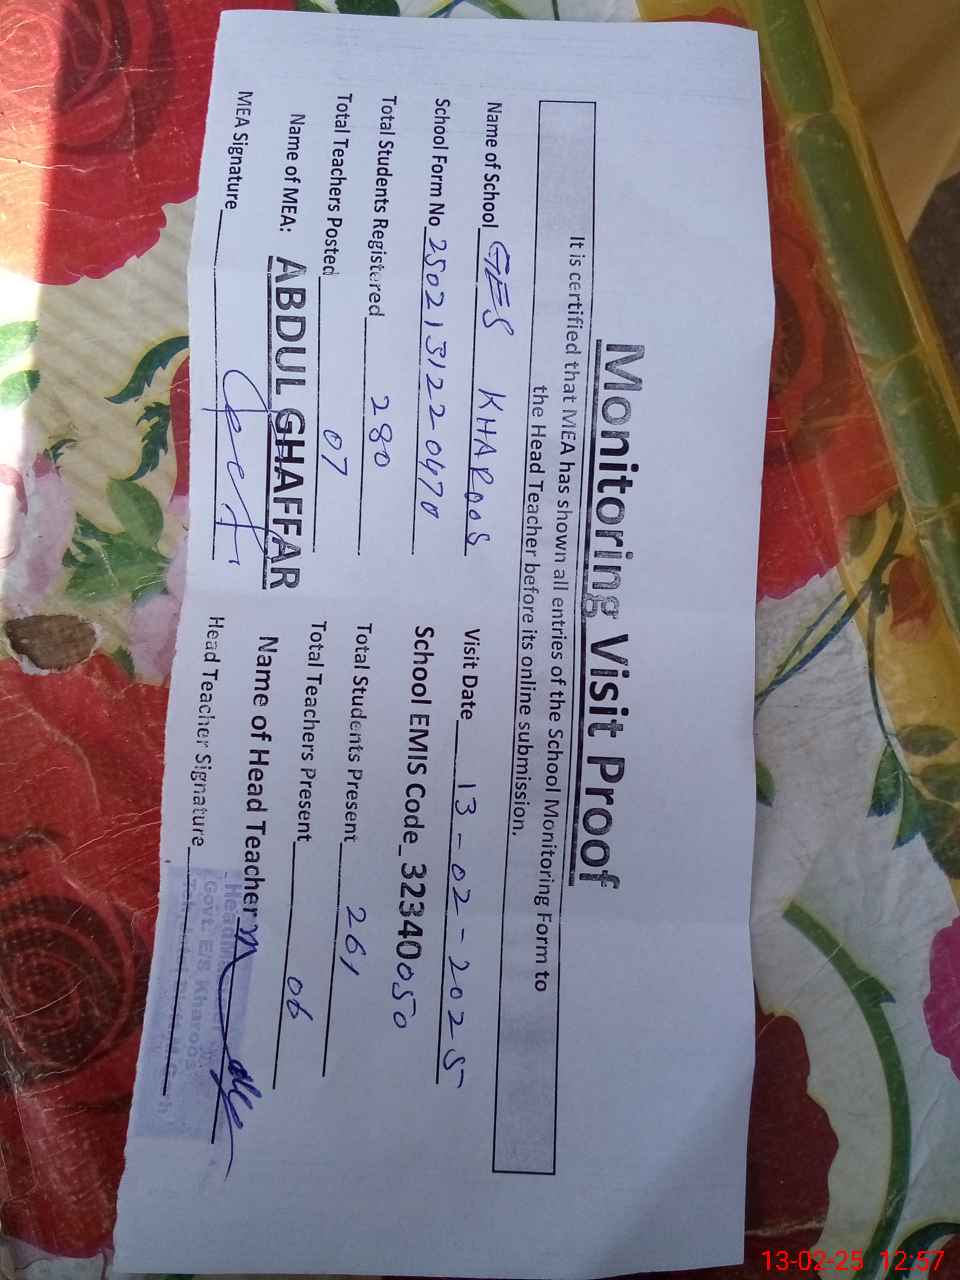 Monitoring Visit Proof
It is certified that MEA has shown all entries of the School Monitoring Form to
the Head Teacher before its online submission.
Name of School GES KHAROOS Visit Date 13-02-2025
School Form No 2502131220470 School EMIS Code_32340050
Total Students Registered 280 Total Students Present 261
Total Teachers Posted 07 Total Teachers Present 06
Name of MEA: ABDUL GHAFFAR Name of Head Teacher
MEA Signature Head Teacher Signature
Govt. E/S Kharoos
13-02-25 12:57